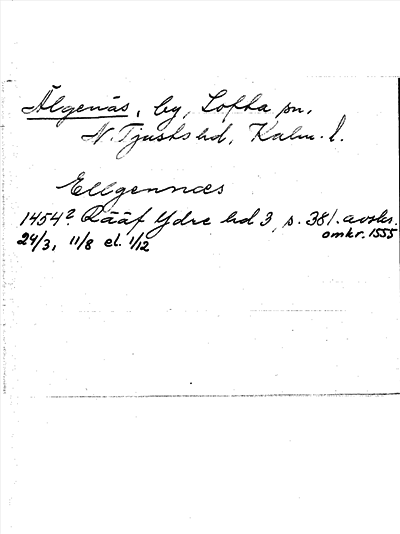 Älgenäs, by, Lofta sn,
N. Tjusts hd, Kalm. l.
Ellgennæs
1454? Rääf Ydre hd 3, s. 381. avskr.
24/3, 11/8 el. 1/12 omkr. 1555